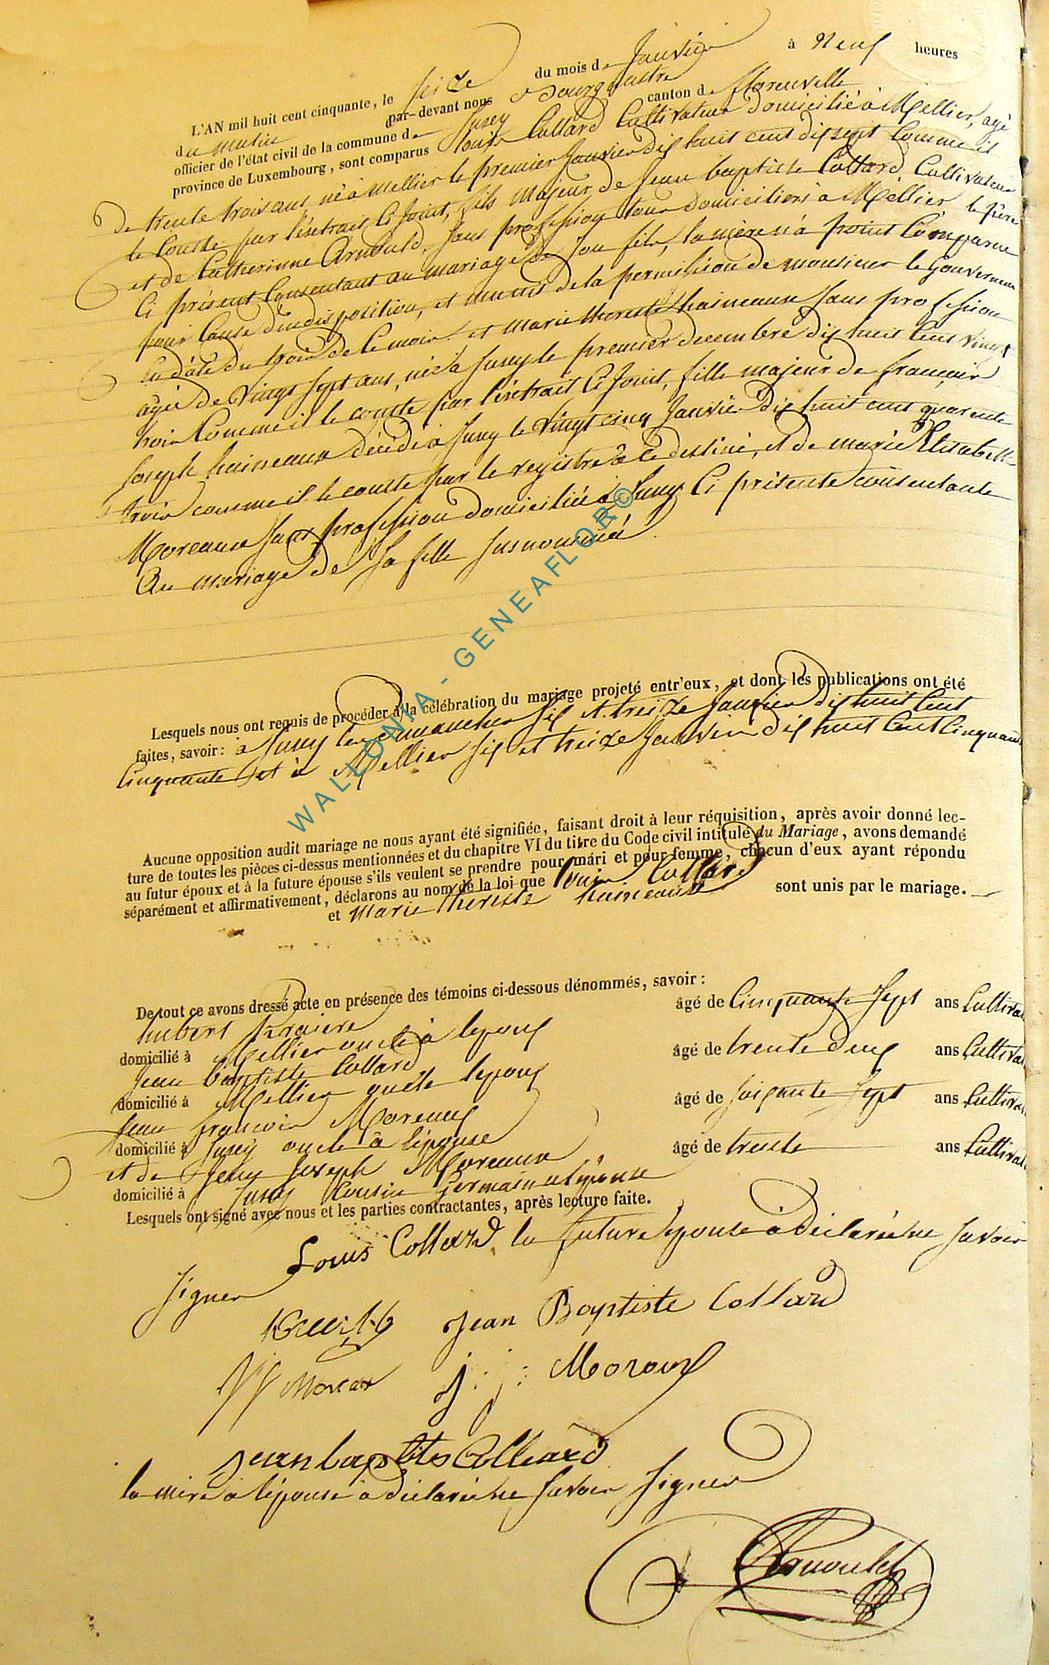 L'AN mil huit cent cinquante, le seize du mois de Janvier à Neuf heures
du matin par-devant nous Bourgmestre
officier de l'état civil de la commune de Jusey canton de florenville
province de Luxembourg, sont comparus Louis Collard Cultivateur domicilié à Mellier, agé
De trente trois ans né à Mellier le premier Janvier dix huit cent dix sept Comme il
le Conste par l'éxtrait Ci Joint, fils majeur de Jean baptiste Collard, Cultivateur
et de Catherinne Arnould, sans profession tous domiciliers à Mellier le père
Ci présent Consentant au mariage de son fils, la mère n'á point Comparue
pour Cause d'indisposition, et de la permission de monsieur le Gouverneur
en date du trois de Ce mois et marie therese haineaux Sans profession
agée de Vingt Sept ans, née à Jusey le premier decembre dix huit Cent Vingt
trois Comme il le conste par l'éxtrait Ci Joint, fille majeur de françois
Joseph hainseaux décédé à Jusey le Vingt cinq Janvier dix huit cent quarente
trois comme il le conste par le registre à ce destiné, et de marie Elisabeth
Moreaux Sans profession domiciliée à Jusey Ci présente consentante
Au mariage de Sa fille susnommée
WALLONIA - GENEAFLOR©
Lesquels nous ont requis de procéder à la célébration du mariage projeté entr'eux, et dont les publications ont été
faites, savoir: à Jusey les Dimanches six et treize Janvier dix huit Cent
Cinquante et à Mellier six et treize Janvier dix huit Cent Cinquante
Aucune opposition audit mariage ne nous ayant été signifiée, faisant droit à leur réquisition, après avoir donné lec-
ture de toutes les pièces ci-dessus mentionnées et du chapitre VI du titre du Code civil intitulé du Mariage, avons demandé
au futur époux et à la future épouse s'ils veulent se prendre pour mari et pour femme, chacun d'eux ayant répondu
séparément et affirmativement, déclarons au nom de la loi que Louis Collard
et marie therese haineaux sont unis par le mariage.
De tout ce avons dressé acte en présence des témoins ci-dessous dénommés, savoir:
hubert âgé de Cinquante Sept ans Cultiva
domicilié à Mellier oncle à lepoux
Jean baptiste Collard âgé de trente deux ans Cultiva
domicilié à Mellier lepoux
Jean françois Moreaux âgé de Soixante Sept ans Cultiva
domicilié à Jusey oncle à l'épouse
et de Jean Joseph Moreaux âgé de trente ans Cultiva
domicilié à Jusey Cousin Germain à l'épouse
Lesquels ont signé avec nous et les parties contractantes, après lecture faite.
Louis Collard la future épouse à déclaré ne Savoir
Signer
Jean Baptiste Collard
Moreax J: j: Moroux
Jean baptiste Collard
la mère à l'épouse à déclaré ne Savoir Signer
Arnould